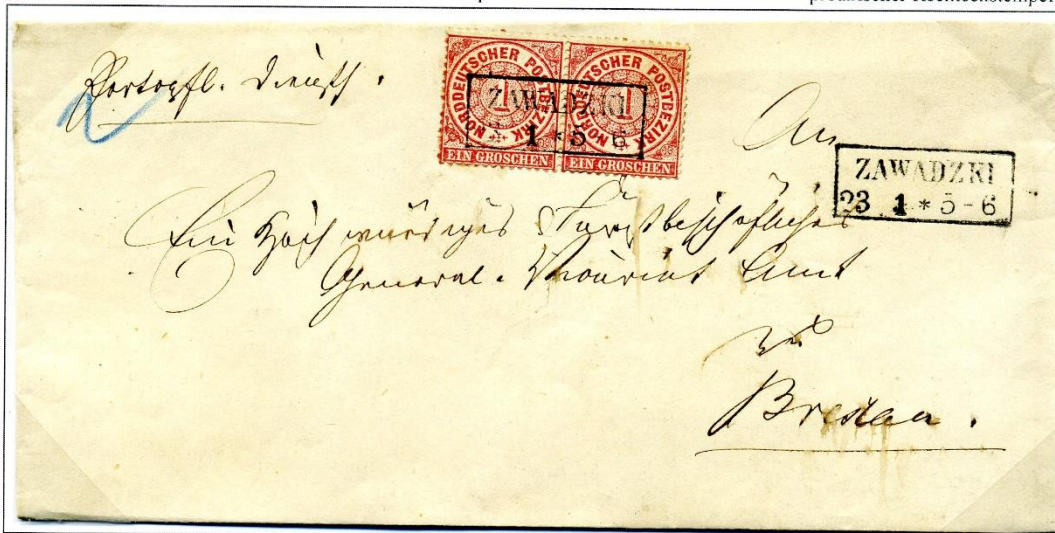 Portopfl. Dienstf.
NORDDEUTSCHER POSTBEZIRK
1
EIN GROSCHEN
NORDDEUTSCHER POSTBEZIRK
1
EIN GROSCHEN
ZAWADZKI
1 * 5 - 6
An
ZAWADZKI
23 1 * 5 - 6
Ein Hochwürdiges Fürstbischöfliches
General-Vicariat Amt
zu
Breslau.